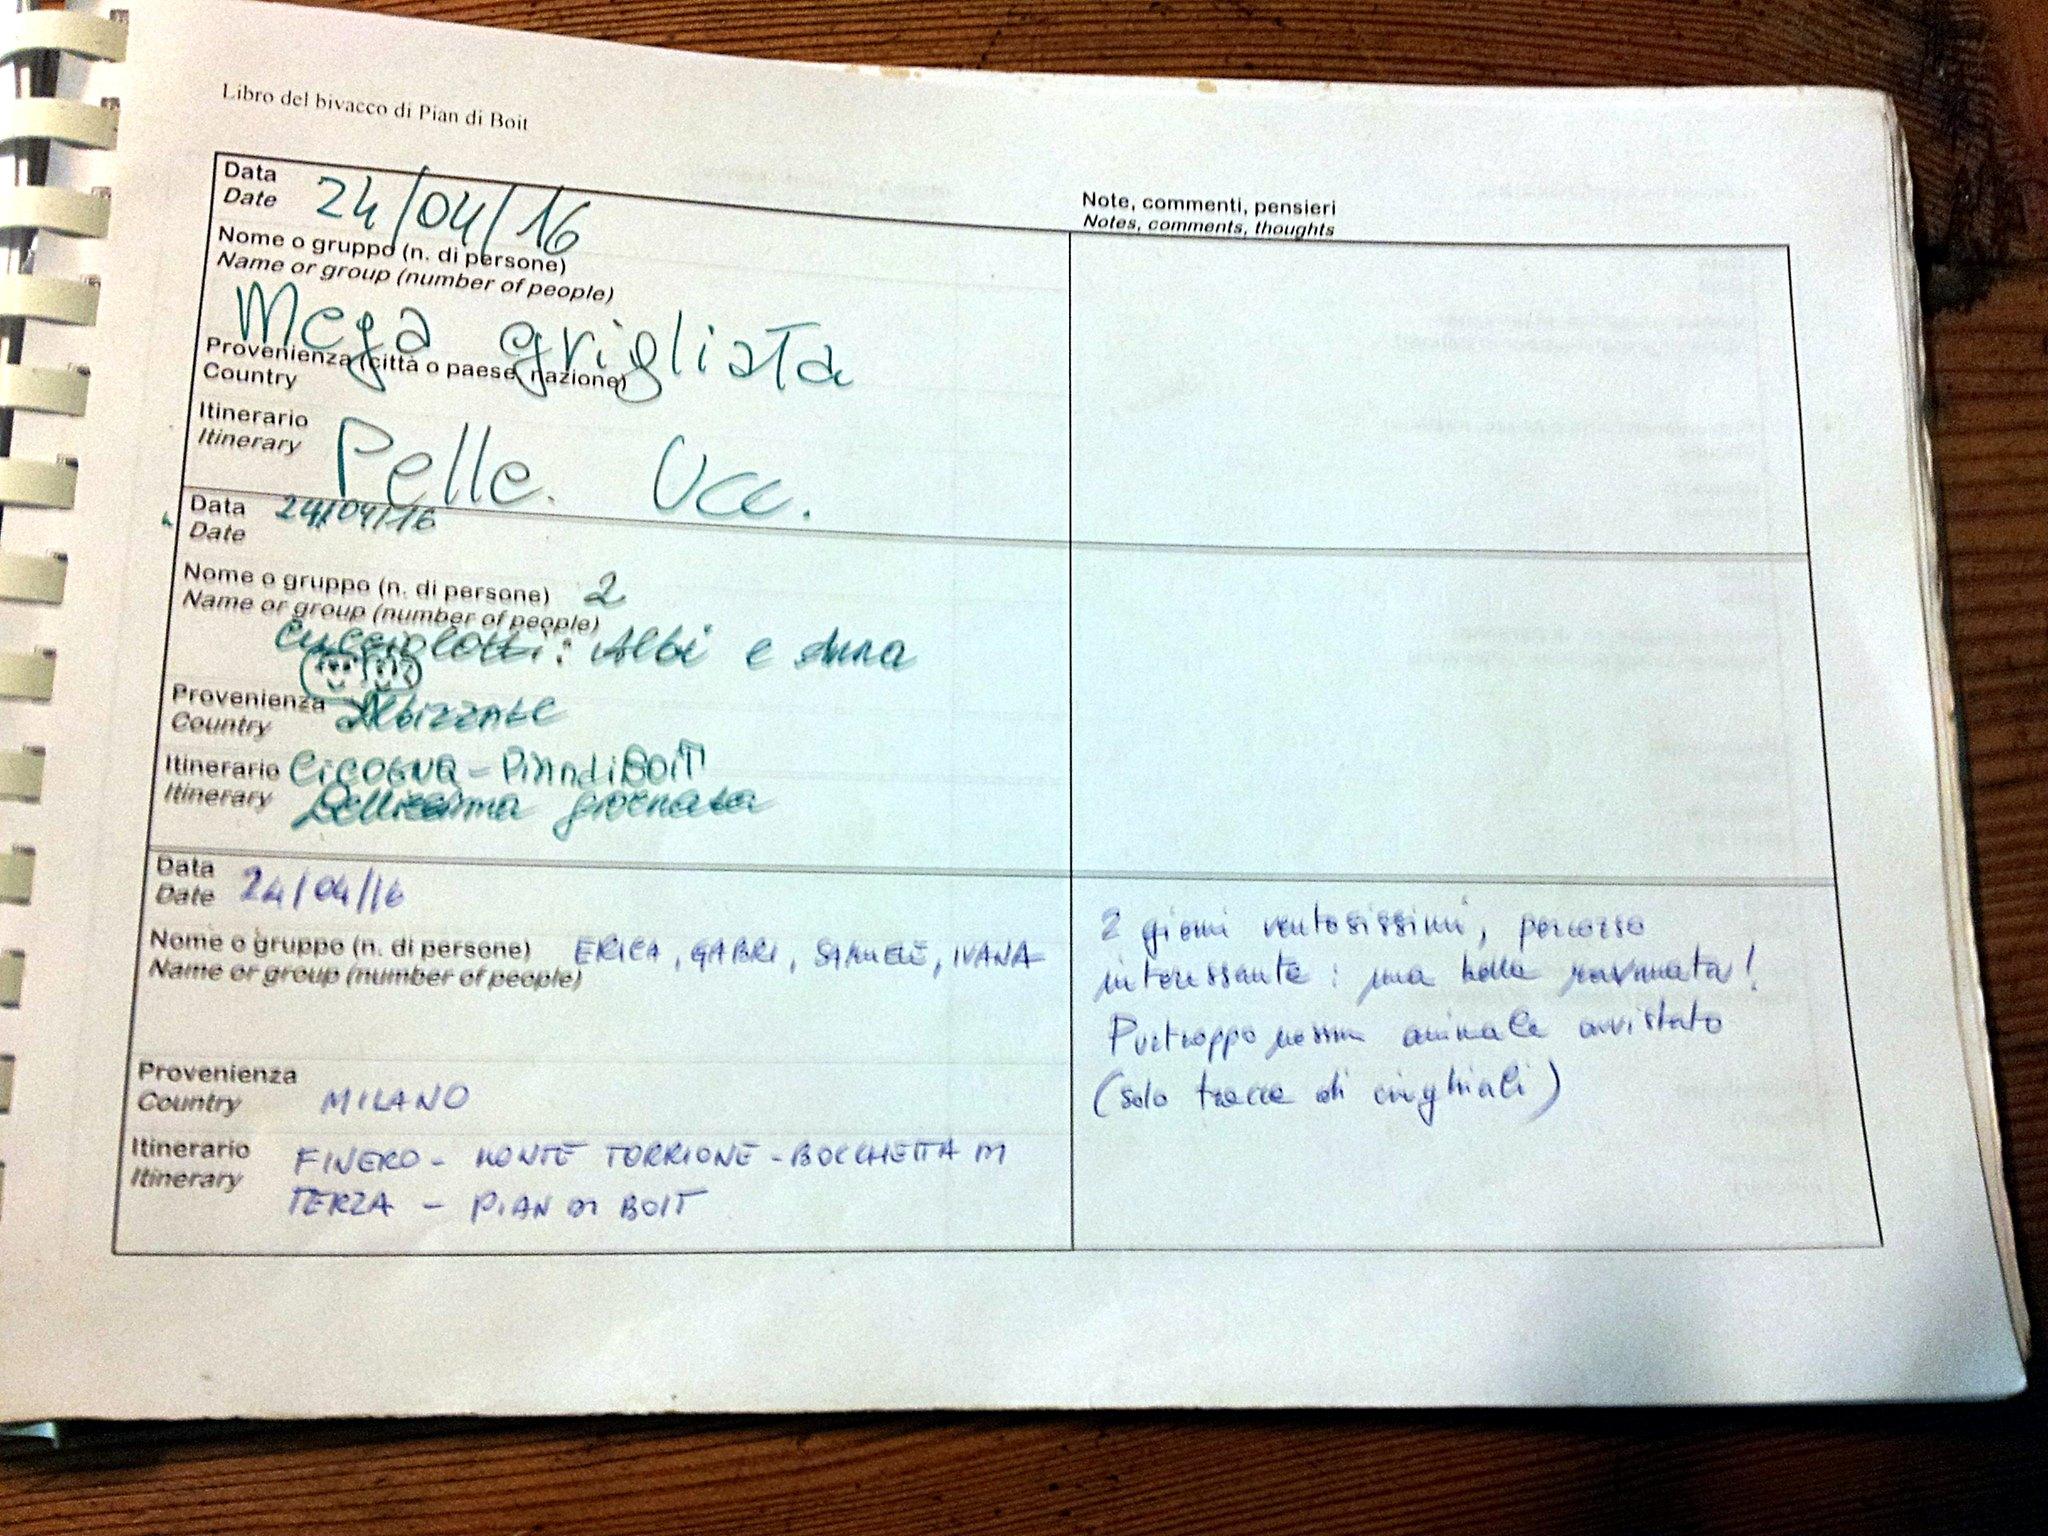 Libro del bivacco di Pian di Boit
Data
Date
24/04/16
Nome o gruppo (n. di persone)
Name or group (number of people)
Mega grigliata
Provenienza (città o paese, nazione)
Country
Itinerario
Itinerary
Pelle. Ucc.
Note, commenti, pensieri
Notes, comments, thoughts
Data
Date
24/04/16
Nome o gruppo (n. di persone) 2
Name or group (number of people)
Cucciolotti: Albi e Anna
Provenienza
Country
Albizzate
Itinerario CICOGNA - PIAN di BOIT
Itinerary Bellissima giornata
Data
Date
24/04/16
Nome o gruppo (n. di persone) ERICA, GABRI, SAMUELE, IVANA
Name or group (number of people)
Provenienza
Country
MILANO
Itinerario FINERO - MONTE TORRIONE - BOCCHETTA DI
Itinerary TERZA - PIAN DI BOIT
2 giorni ventosissimi, percorso
interessante: una bella ravanata!
Purtroppo nessun animale avvistato
(solo tracce di cinghiali)